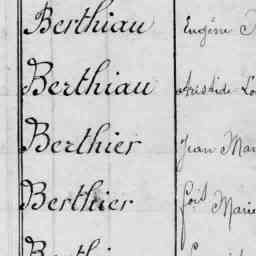 Berthiau Eugène
Berthiau Aristide Lo
Berthier Jean Mar
Berthier Marie
Berthi